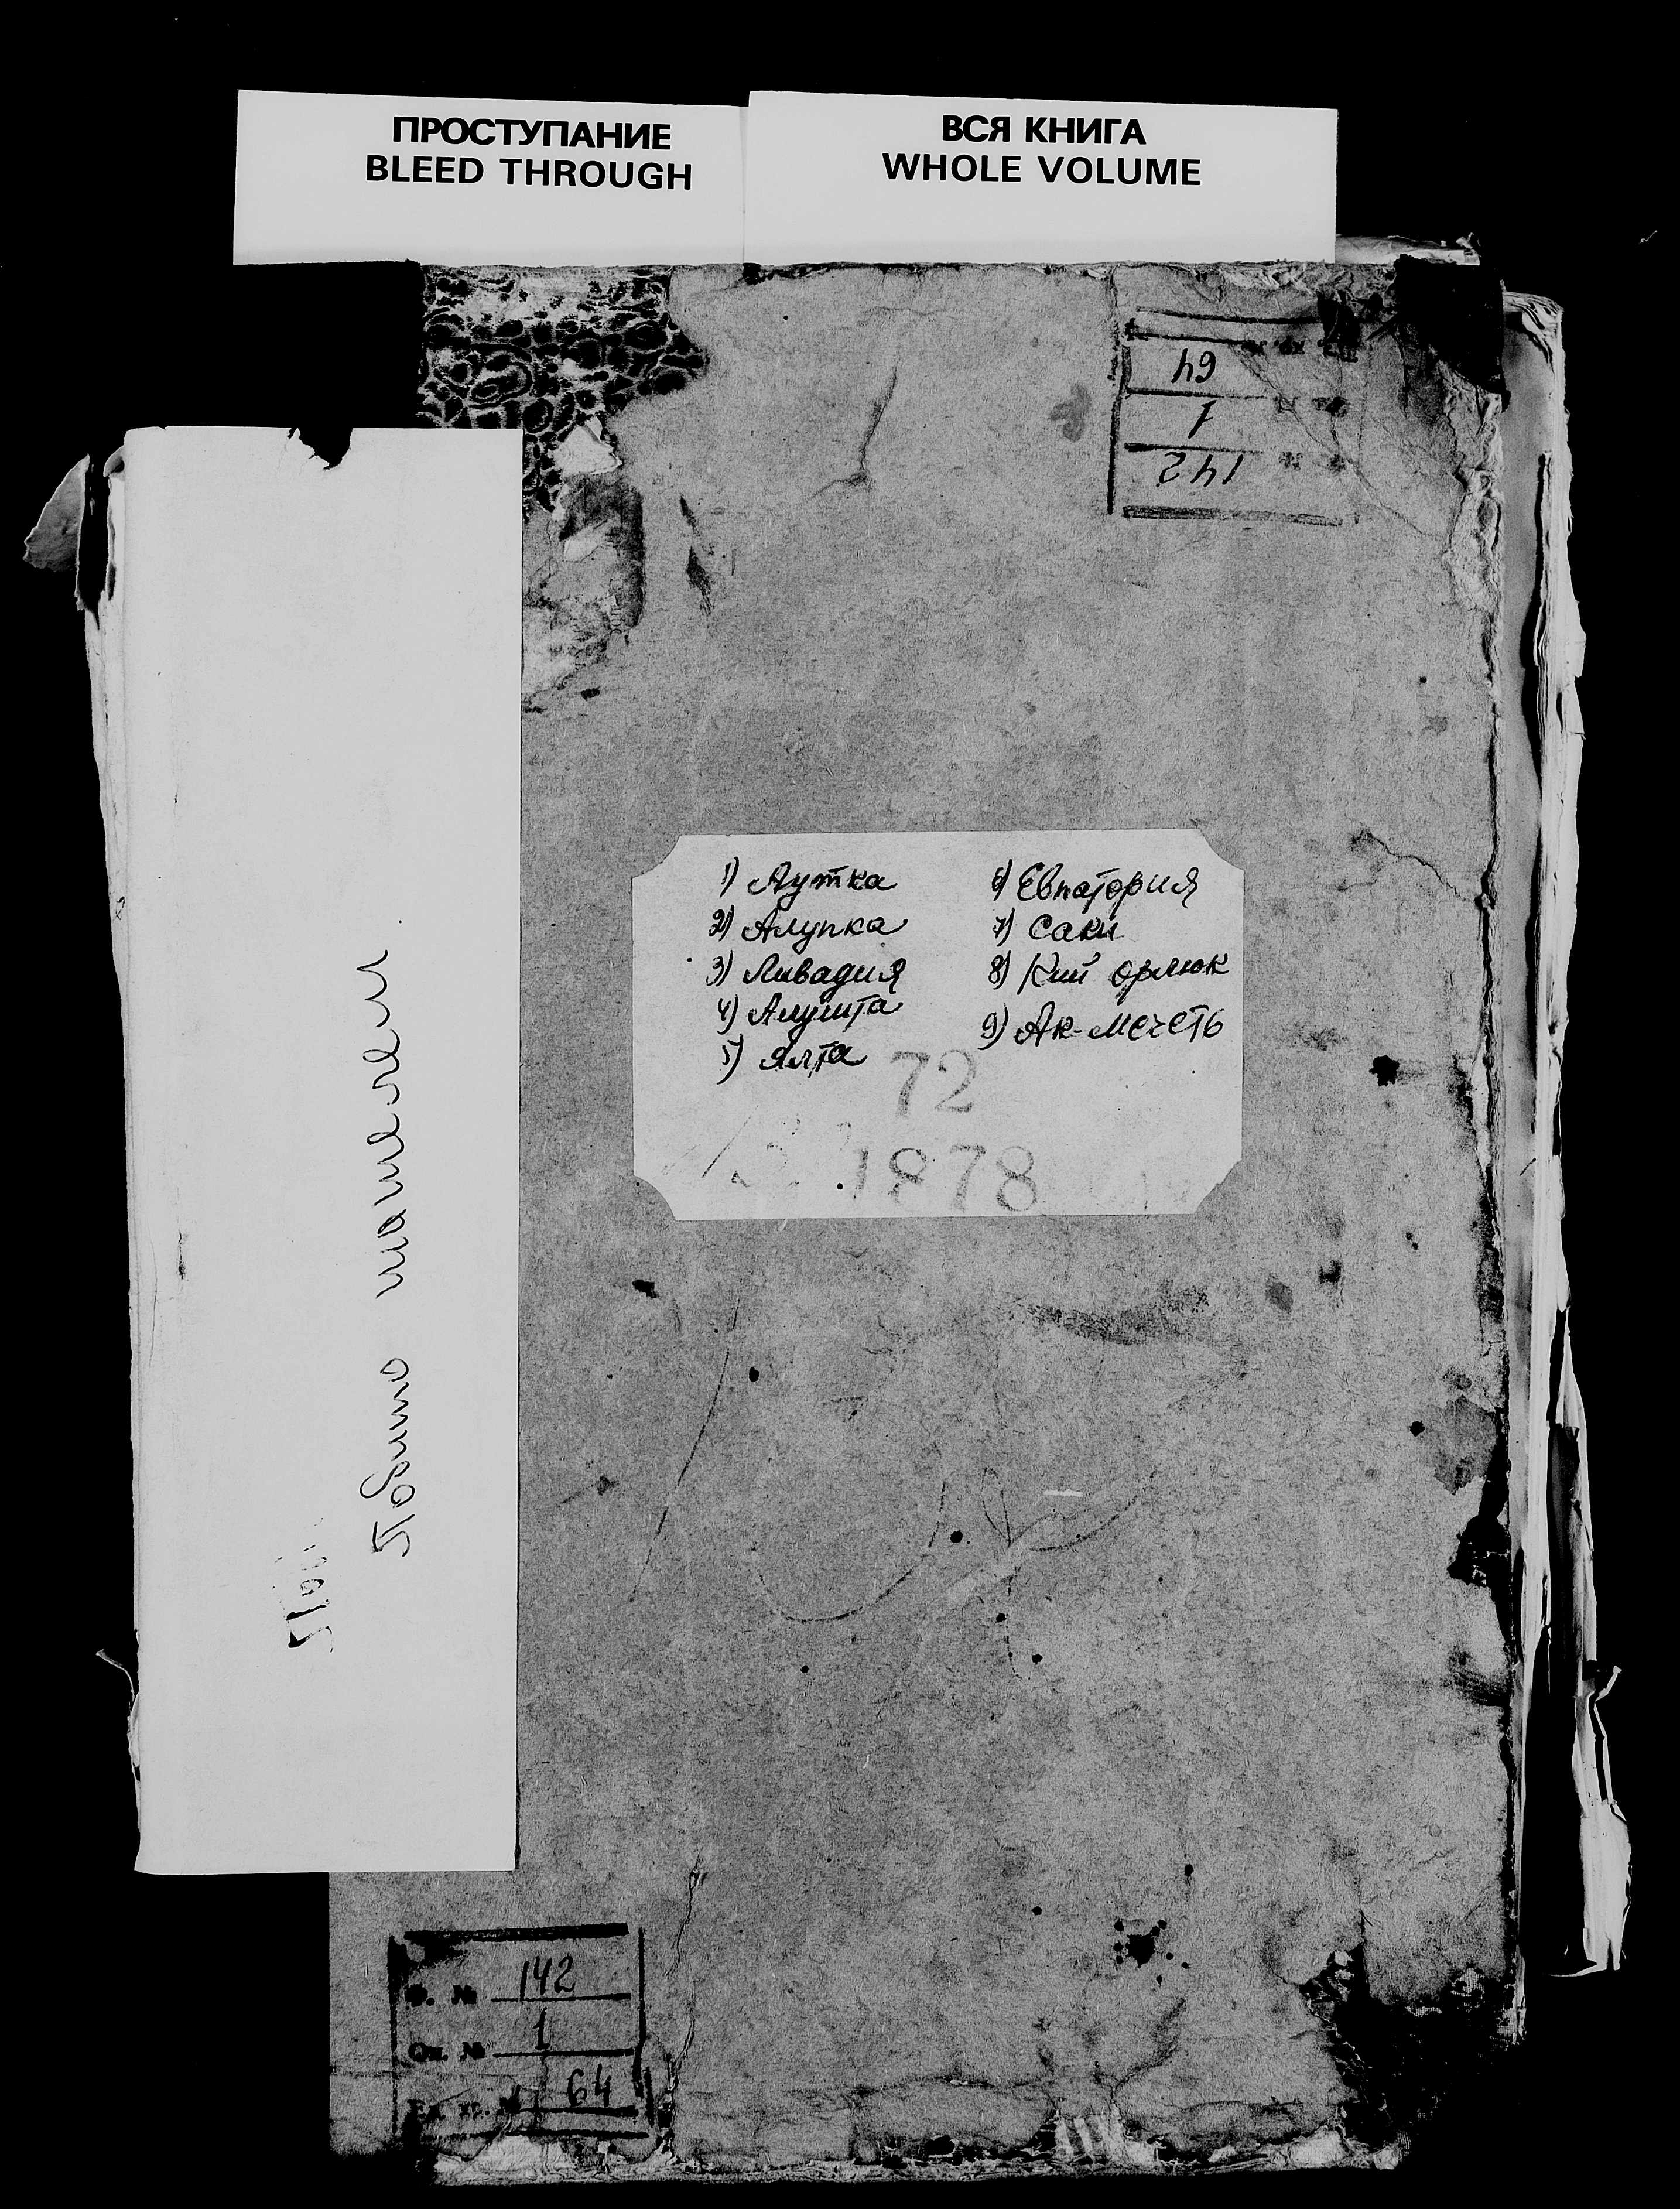 ПРОСТУПАНИЕ
BLEED THROUGH
ВСЯ КНИГА
WHOLE VOLUME
64
1
142
1) Аутка
2) Алупка
3) Ливадия
4) Алушта
5) Ялта
6) Евпатория
7) Саки
8) Кий орлюк
9) Ак-мечеть
72
1878
Ф. № 142
Оп. № 1
Ед. хр. № 64